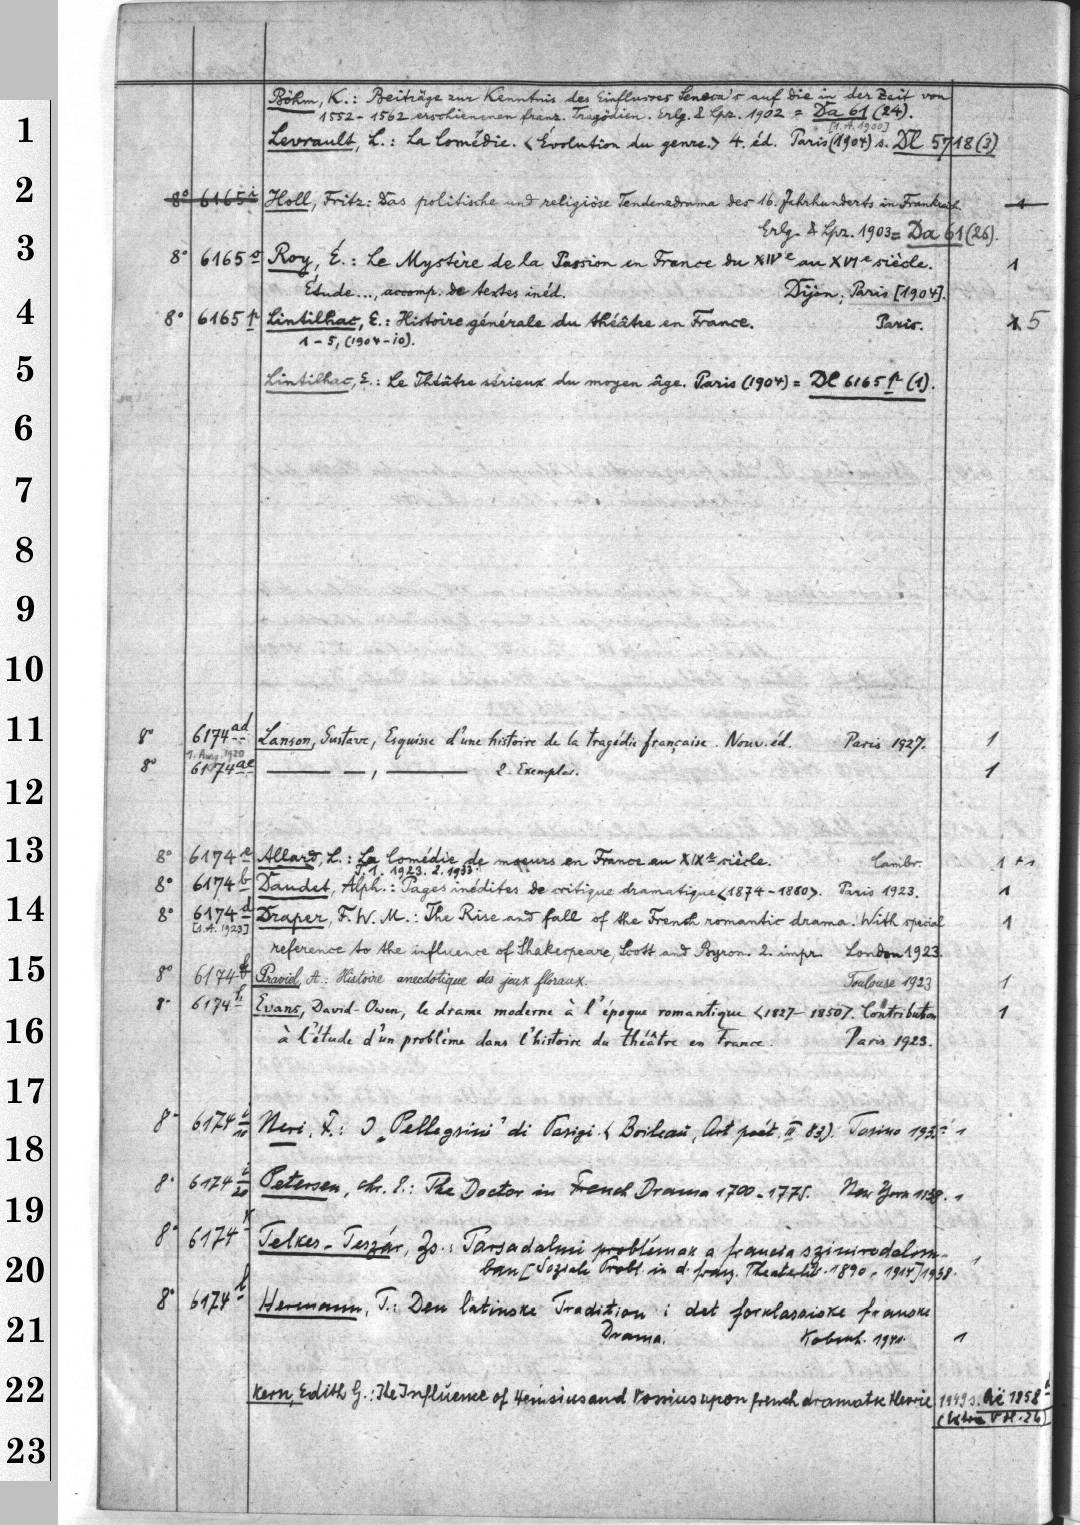 Böhm, K.: Beiträge zur Kenntnis des Einflusses Seneca's auf die in der Zeit von
1 1552-1562 erschienenen franz. Tragödien. Erlg. & Lpz. 1902 = Da 61 (24).
[1.A. 1900]
Levrault, L.: La Comédie. <Évolution du genre.> 4. éd. Paris (1904) s. Dl 5718 (3)
2 8° 6165 i Holl, Fritz: Das politische und religiöse Tendenzdrama des 16. Jahrhunderts in Frankreich 1
Erlg. & Lpz. 1903 = Da 61 (26).
3 8° 6165 o Roy, É.: Le Mystère de la Passion en France du XIVe au XVIe siècle. 1
Étude..., accomp. de textes inéd. Dijon; Paris [1904].
4 8° 6165 p Lintilhac, E.: Histoire générale du théâtre en France. Paris. 5
1-5, (1904-10).
5 Lintilhac, E.: Le Théâtre sérieux du moyen âge. Paris (1904) = Dl 6165 p (1).
6
7
8
9
10
11 8° 6174 ad Lanson, Gustave, Esquisse d'une histoire de la tragédie française. Nouv. éd. Paris 1927. 1
1. Aug. 1920
8° 6174 ae —— —, —— 2. Exemplar. 1
12
13 8° 6174 a Allard, L.: La Comédie de moeurs en France au XIXe siècle. Cambr. 1 + 1
T. 1. 1923. 2. 1933.
8° 6174 b Daudet, Alph.: Pages inédites de critique dramatique <1874-1880>. Paris 1923. 1
14 8° 6174 d Draper, F. W. M.: The Rise and fall of the French romantic drama. With special 1
[1.A. 1923]
reference to the influence of Shakespeare, Scott and Byron. 2. impr. London 1923.
15 8° 6174 Praviel, A.: Histoire anecdotique des jeux floraux. Toulouse 1923 1
8° 6174 h Evans, David-Owen, le drame moderne à l'époque romantique <1827-1850>. Contribution 1
16 à l'étude d'un problème dans l'histoire du théâtre en France. Paris 1923.
17
8° 6174 i/10 Neri, F.: I „Pellegrini" di Parigi <Boileau, Art poét. III 83>. Torino 1
18
8° 6174 i/20 Petersen, Chr. P.: The Doctor in French Drama 1700-1775. New York 1938. 1
19
8° 6174 k Telkes-Teszár, Zs.: Tarsadalmi problémak a francia szinirodalom- 1
20 ban [Soziale Probl. in d. franz. Theaterlit. 1890-1914] 1938.
8° 6174 l Hermann, T.: Den latinske Tradition i det forklassiske franske
21 Drama. Kobenh. 1941. 1
22 Kern, Edith G.: The Influence of Heinsius and Vossius upon french dramatic theorie 1949 s. 1858
23